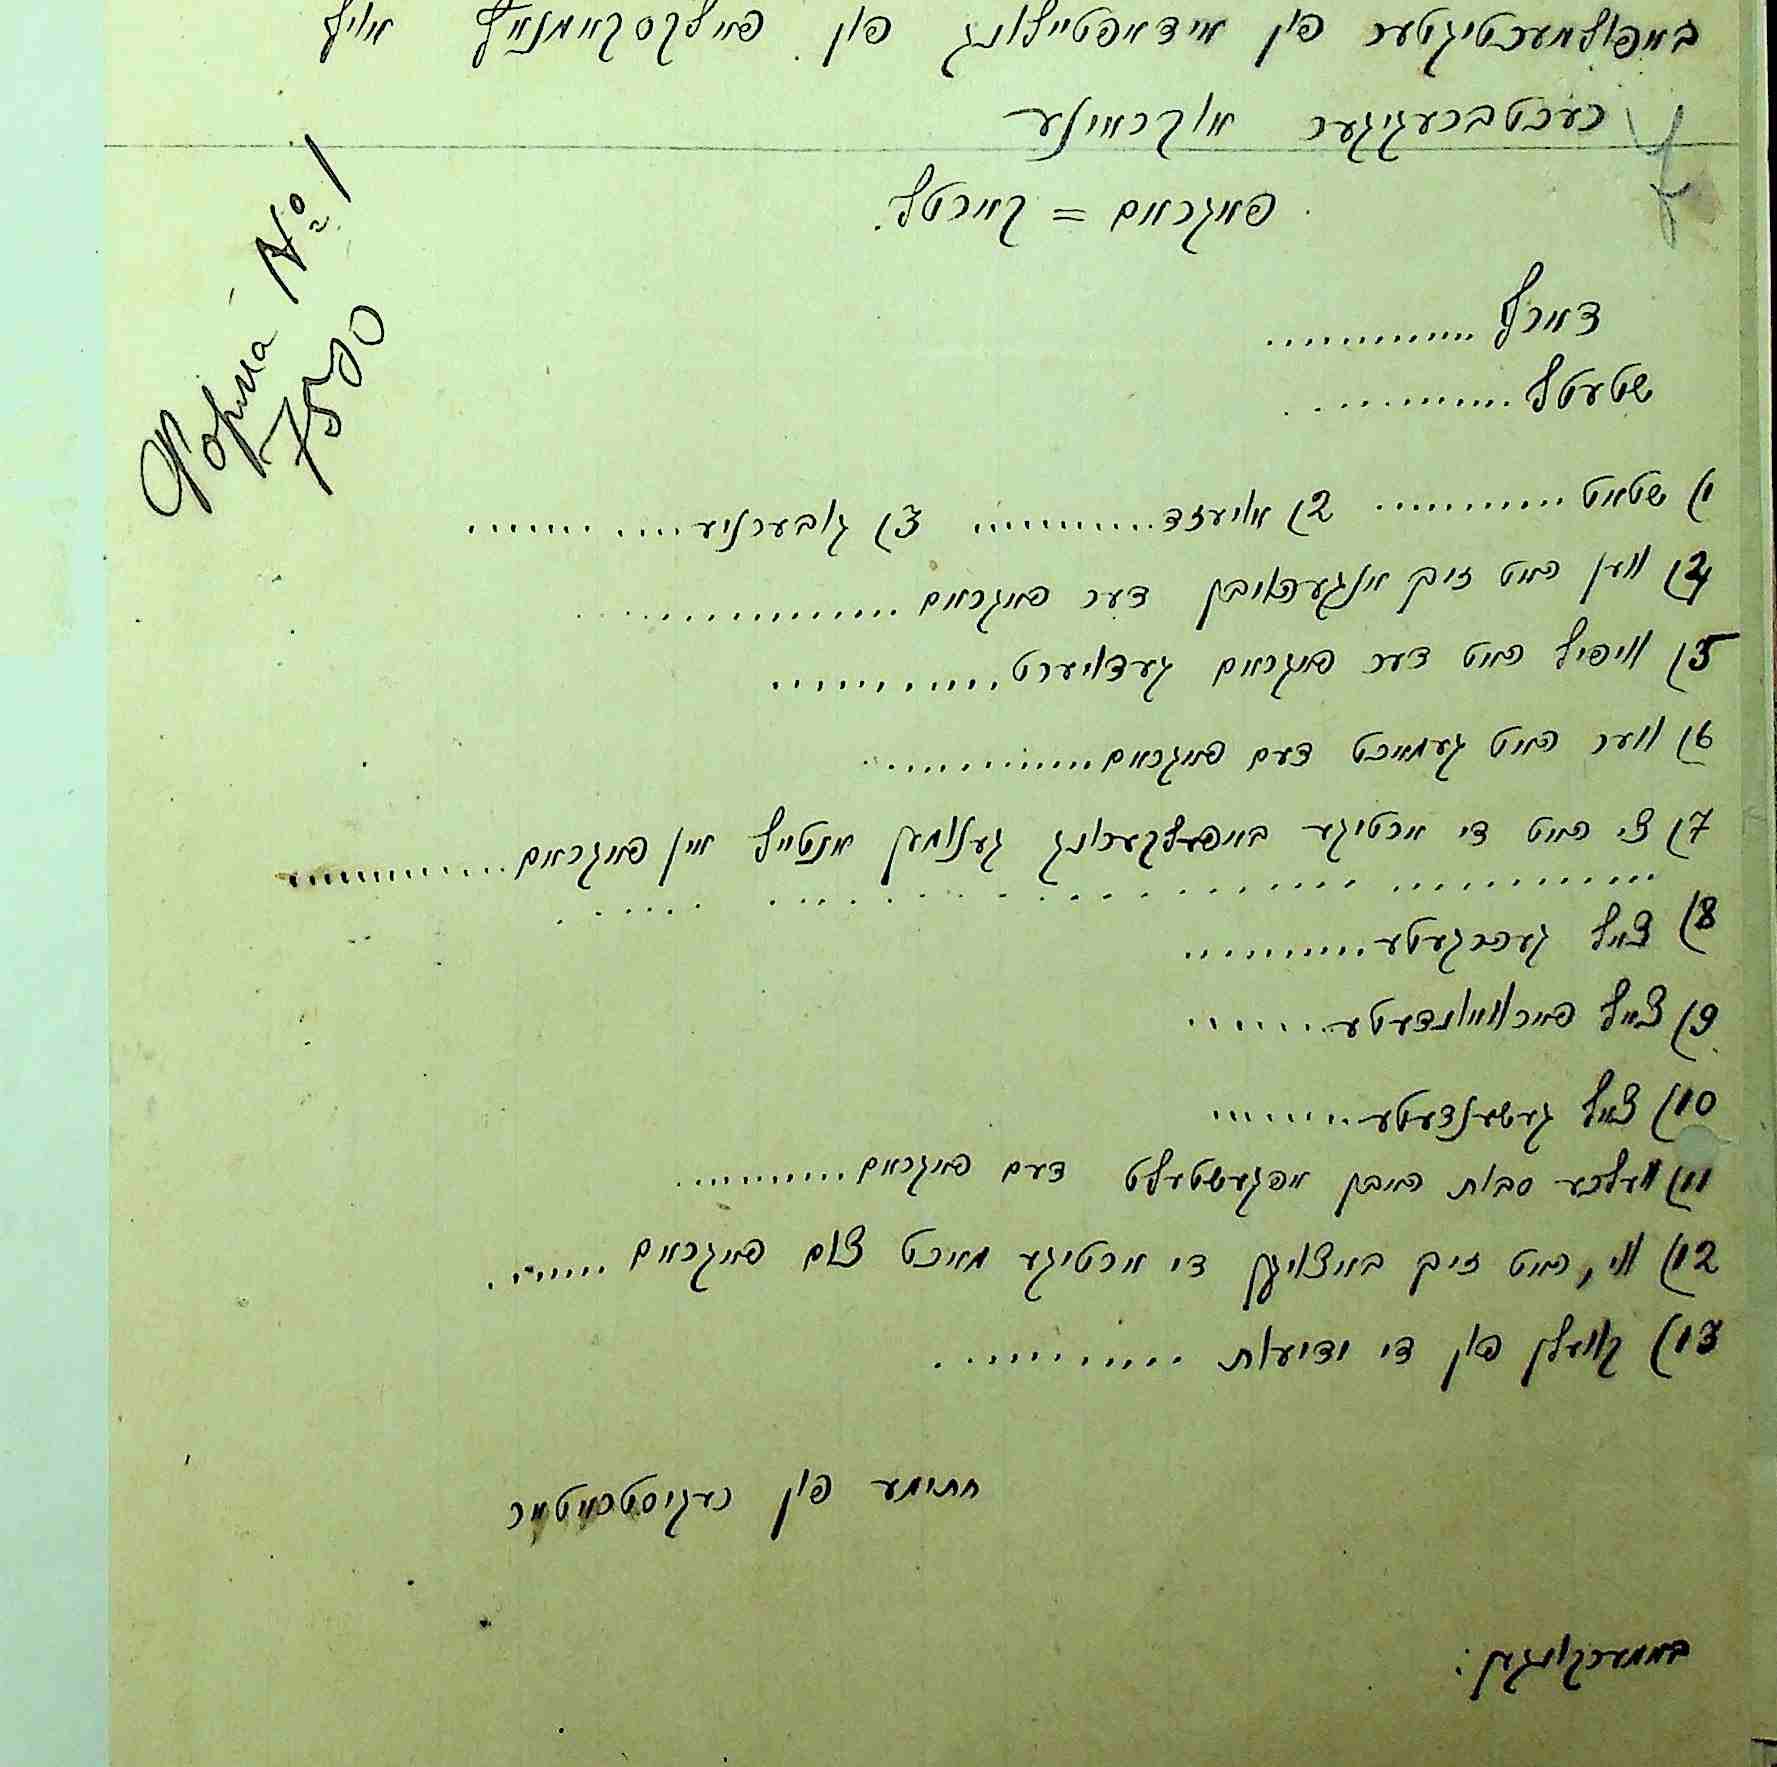 באפולמעכטיגטער פון אידאפטיילונג פון פאלקסקאמנאץ אויף
רעכטברעגיגער אוקראינע
פאגראם = קארטל.
Форма № 1
7500
דארף ............
שטעטל ............
1) שטאט ........... 2) אויעזד ........... 3) גובערניע ...........
4) ווען האט זיך אנגעהויבן דער פאגראם ................
5) וויפיל האט דער פאגראם געדויערט ...........
6) ווער האט געמאכט דעם פאגראם .............
7) צי האט די ארטיגע באפעלקערונג גענומען אנטייל אין פאגראם ............
............................
8) צאל געהרגעטע ..........
9) צאל פארוואונדעטע .......
10) צאל געשענדעטע .........
11) וועלכע סבות האבן אפגעשטעלט דעם פאגראם ...........
12) ווי, האט זיך באצויגן די ארטיגע מאכט צום פאגראם .......
13) קוועלן פון די ידיעות ............
חתימע פון רעגיסטראטאר
באמערקונגען :